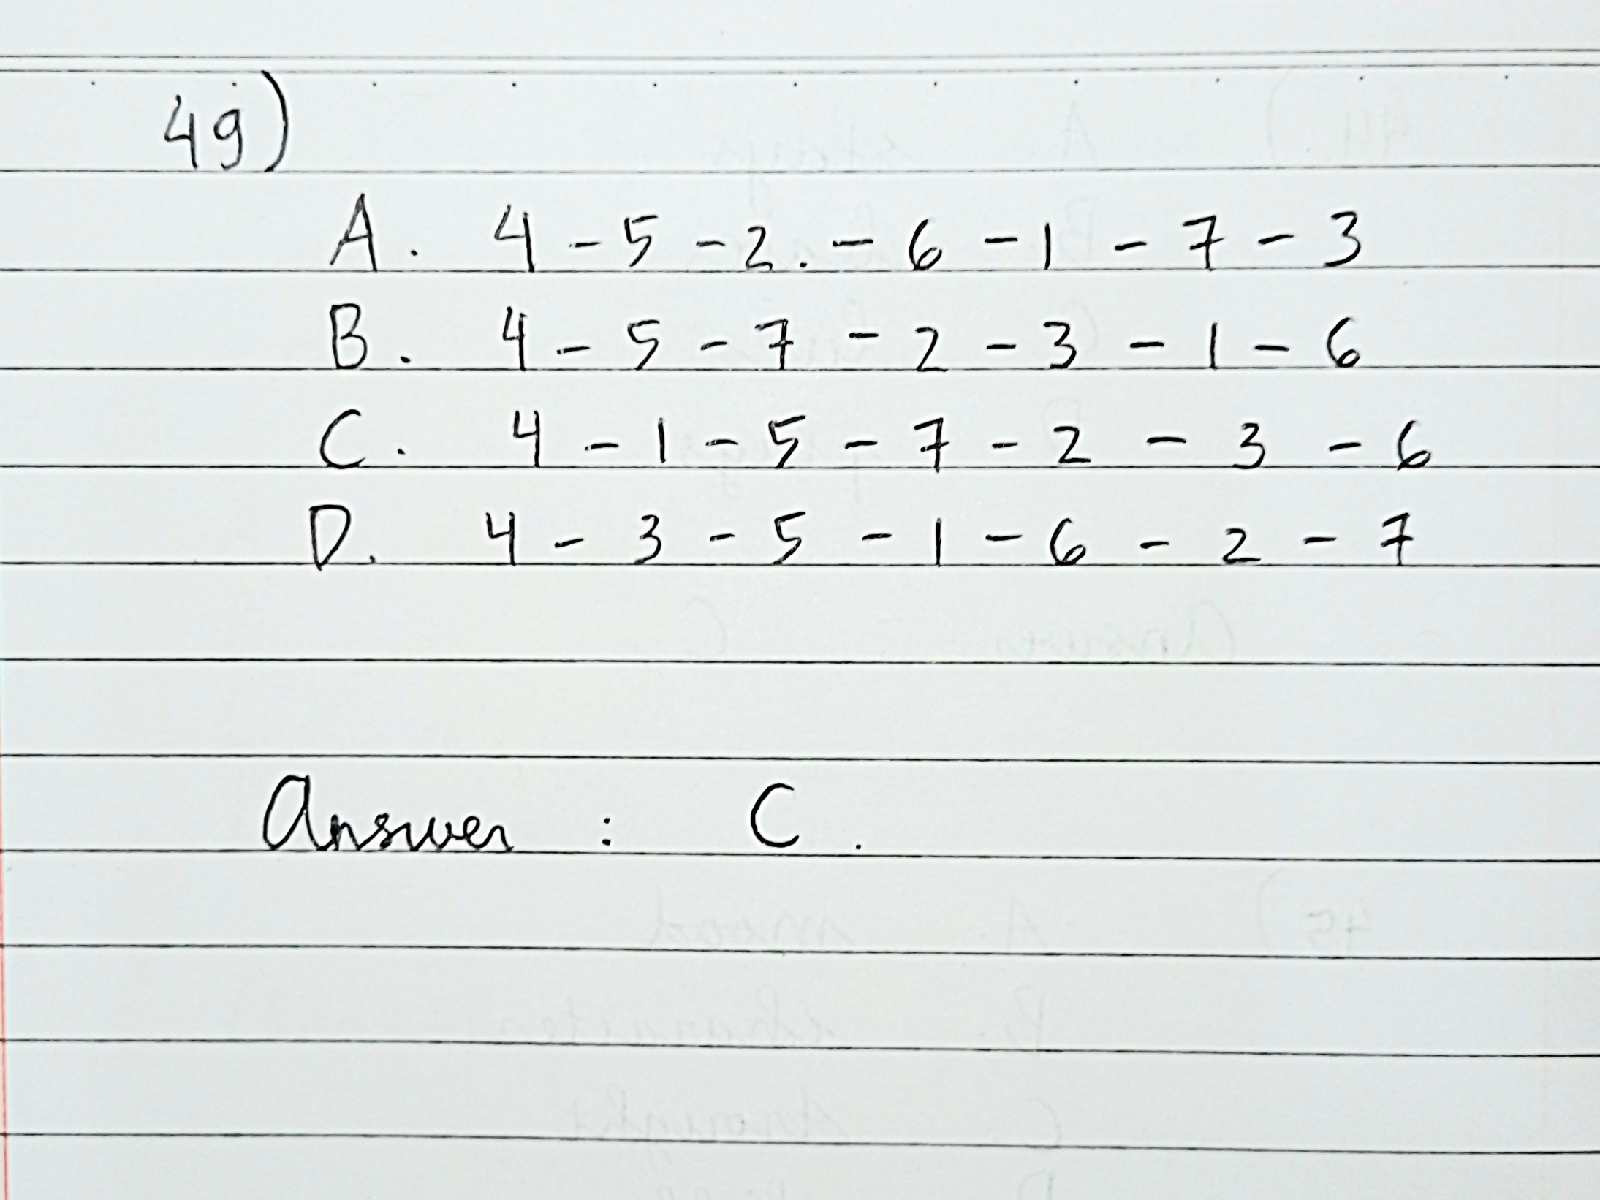 49)
A. 4 - 5 - 2. - 6 - 1 - 7 - 3
B. 4 - 5 - 7 - 2 - 3 - 1 - 6
C. 4 - 1 - 5 - 7 - 2 - 3 - 6
D. 4 - 3 - 5 - 1 - 6 - 2 - 7
Answer : C.